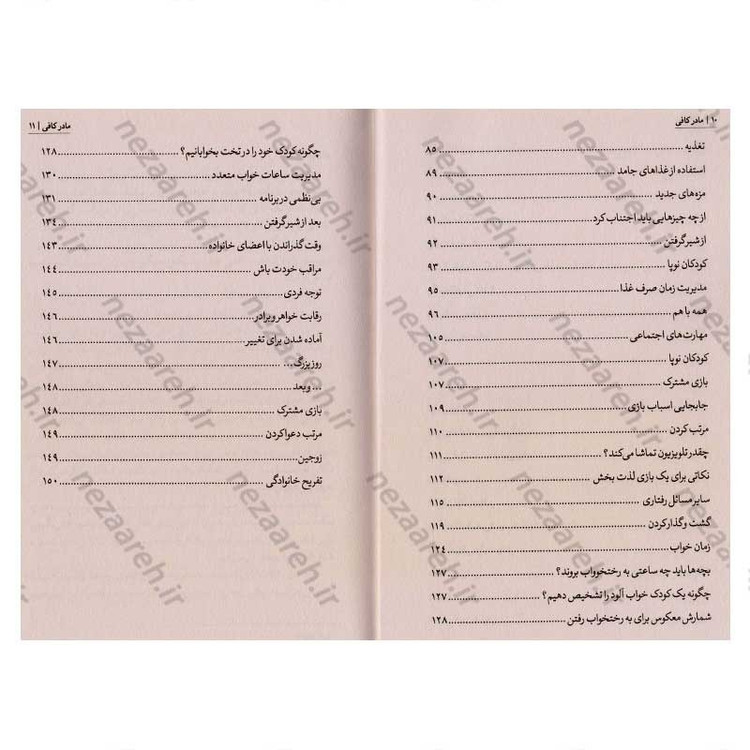 ۱۰ | مادر کافی
تغذیه ........ ۸۵
استفاده از غذاهای جامد ........ ۸۹
مزه‌های جدید ........ ۹۰
از چه چیزهایی باید اجتناب کرد ........ ۹۱
از شیر گرفتن ........ ۹۲
کودکان نوپا ........ ۹۳
مدیریت زمان صرف غذا ........ ۹۵
همه با هم ........ ۹۶
مهارت‌های اجتماعی ........ ۱۰۵
کودکان نوپا ........ ۱۰۷
بازی مشترک ........ ۱۰۷
جابجایی اسباب بازی ........ ۱۰۹
مرتب کردن ........ ۱۱۰
چقدر تلویزیون تماشا می‌کند؟ ........ ۱۱۱
نکاتی برای یک بازی لذت بخش ........ ۱۱۲
سایر مسائل رفتاری ........ ۱۱۵
گشت و گذار کردن ........ ۱۱۹
زمان خواب ........ ۱۲۴
بچه‌ها باید چه ساعتی به رختخوواب بروند؟ ........ ۱۲۷
چگونه یک کودک خواب آلود را تشخیص دهیم؟ ........ ۱۲۷
شمارش معکوس برای به رختخواب رفتن ........ ۱۲۸
مادر کافی | ۱۱
چگونه کودک خود را در تخت بخوابانیم؟ ........ ۱۲۸
مدیریت ساعات خواب متعدد ........ ۱۳۰
بی‌نظمی در برنامه ........ ۱۳۱
بعد از شیر گرفتن ........ ۱۳۴
وقت گذراندن با اعضای خانواده ........ ۱۴۳
مراقب خودت باش ........ ۱۴۴
توجه فردی ........ ۱۴۵
رقابت خواهر و برادر ........ ۱۴۶
آماده شدن برای تغییر ........ ۱۴۶
روز بزرگ... ........ ۱۴۷
... و بعد ........ ۱۴۸
بازی مشترک ........ ۱۴۸
مرتب دعوا کردن ........ ۱۴۹
زوجین ........ ۱۴۹
تفریح خانوادگی ........ ۱۵۰
nezaareh.ir